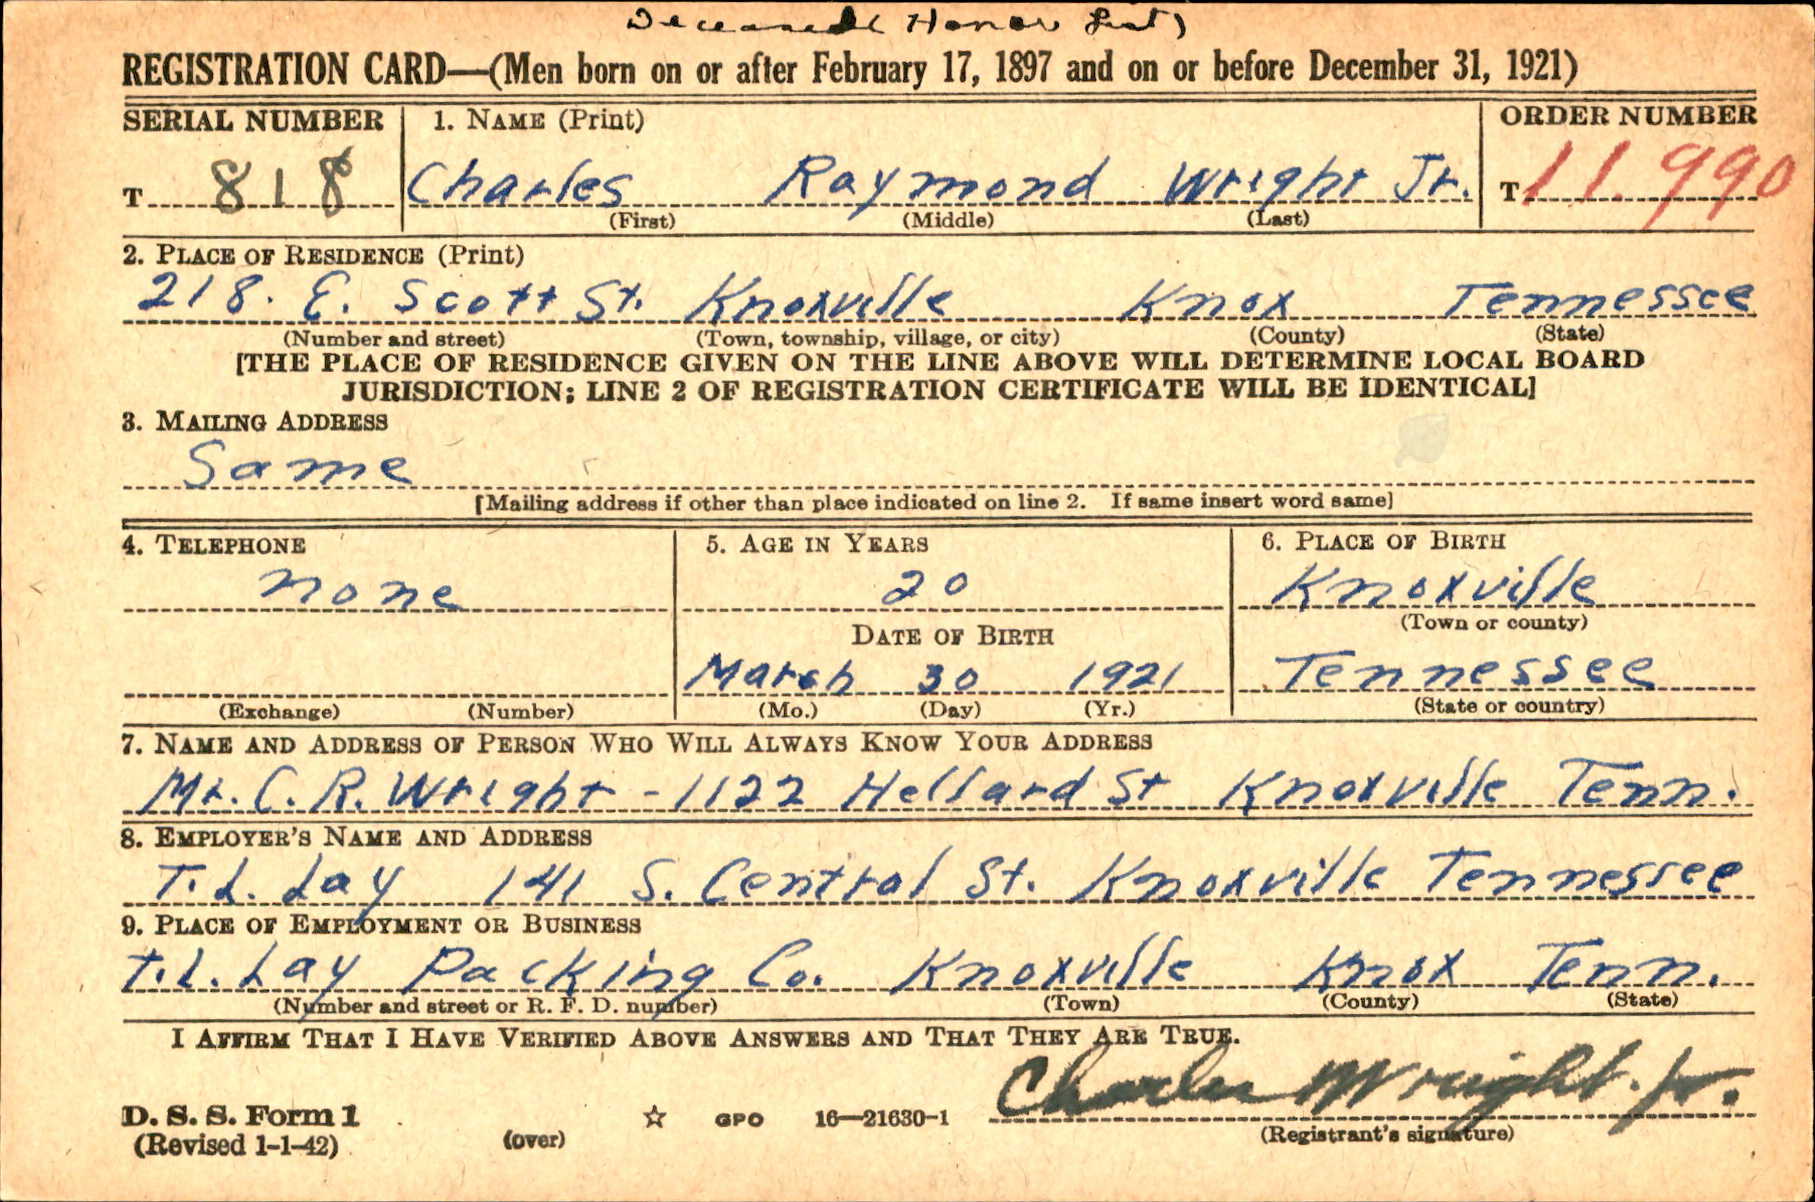 Deceased (Honor List)
REGISTRATION CARD—(Men born on or after February 17, 1897 and on or before December 31, 1921)
SERIAL NUMBER 1. NAME (Print) ORDER NUMBER
T 818 Charles Raymond Wright Jr. T 11.990
(First) (Middle) (Last)
2. PLACE OF RESIDENCE (Print)
218. E. Scott St. Knoxville Knox Tennessee
(Number and street) (Town, township, village, or city) (County) (State)
[THE PLACE OF RESIDENCE GIVEN ON THE LINE ABOVE WILL DETERMINE LOCAL BOARD
JURISDICTION; LINE 2 OF REGISTRATION CERTIFICATE WILL BE IDENTICAL]
3. MAILING ADDRESS
Same
[Mailing address if other than place indicated on line 2. If same insert word same]
4. TELEPHONE 5. AGE IN YEARS 6. PLACE OF BIRTH
none 20 Knoxville
(Town or county)
DATE OF BIRTH
March 30 1921 Tennessee
(Exchange) (Number) (Mo.) (Day) (Yr.) (State or country)
7. NAME AND ADDRESS OF PERSON WHO WILL ALWAYS KNOW YOUR ADDRESS
Mr. C. R. Wright - 1122 St Knoxville Tenn.
8. EMPLOYER'S NAME AND ADDRESS
T. L. Lay 141 S. Central St. Knoxville Tennessee
9. PLACE OF EMPLOYMENT OR BUSINESS
T. L. Lay Packing Co. Knoxville Knox Tenn.
(Number and street or R. F. D. number) (Town) (County) (State)
I AFFIRM THAT I HAVE VERIFIED ABOVE ANSWERS AND THAT THEY ARE TRUE.
Charles Wright. Jr.
D. S. S. Form 1 GPO 16—21630-1
(Revised 1-1-42) (over) (Registrant's signature)